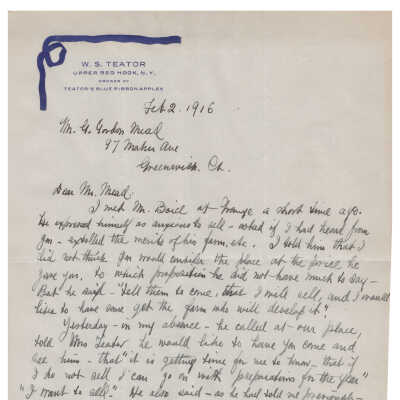 W. S. TEATOR
UPPER RED HOOK, N.Y.
GROWER OF
TEATOR'S BLUE RIBBON APPLES
Feb. 2. 1916
Mr. G. Gordon Mead
97 Maher Ave
Greenwich, Ct.
Dear Mr. Mead:
I met Mr. at Grange a short time ago.
He expressed himself as anxious to sell - asked if I had heard from
you - extolled the merits of his farm, etc. I told him that I
did not think you would consider the place at the price he
gave you. to which proposition he did not have much to say -
But he said - "tell them to come, that I will sell, and I would
like to have some get the farm who will develop it".
Yesterday - in my absence - he called at our place,
told Mrs Teator he would like to have you come and
see him - that "it is getting time for me to know - that if
I do not sell I can go on with preparations for the year"
"I want to sell." He also said - as he had told me previously -